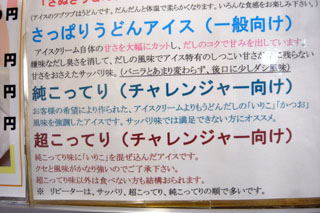 (アイスのツブツブはうどんです。だんだんと体温で柔らかくなります。いろんな食感をお楽しみ下さい。)
さっぱりうどんアイス(一般向け)
アイスクリーム自体の甘さを大幅にカットし、だしのコクで甘みを出しています。
嫌味なだし臭さを消して、だしの風味でアイス特有のしつこい甘さがさに残らない
甘さをおさえたサッパリ味。(バニラとあまり変わらず、後口に少しダシ風味)
純こってり(チャレンジャー向け)
お客様の希望により作られた、アイスクリームよりもうどんだしの「いりこ」「かつお」
風味を強調したアイスです。サッパリ味では満足できない方にオススメ。
超こってり(チャレンジャー向け)
純こってり味に「いりこ」を混ぜ込んだアイスです。
クセと風味がかなり強いのでご了承下さい。
超こってり味以外は食べない方も結構おられます。
※ リピーターは、サッパリ、超こってり、純こってりの順で多いです。
円
円
円